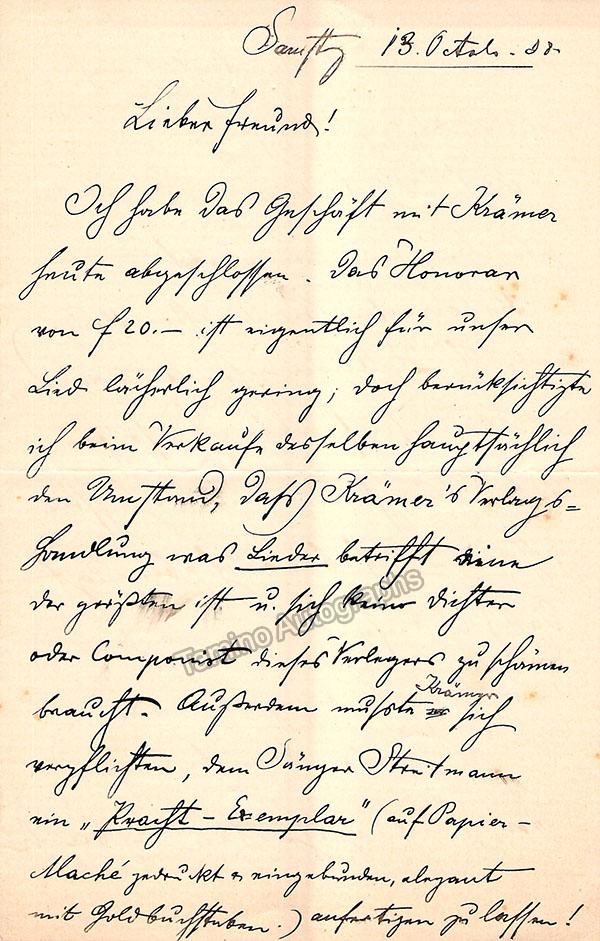 Samstg 13. Octob. 88
Lieber Freund!
Ich habe das Geschäft mit Krämer
heute abgeschlossen. Das Honorar
von f 20.— ist eigentlich für unser
Lied lächerlich gering; doch berücksichtigte
ich beim Verkaufe desselben hauptsächlich
den Umstand, daß Krämer's Verlags=
handlung was Lieder betrifft eine
der größten ist u. sich keine Dichter
oder Componist dieses Verlegers zu schämen
braucht. Außerdem musste Krämer sich
verpflichten, dem Sänger Streitmann
ein „Pracht-Exemplar" (auf Papier-
Maché gedruckt & eingebunden, elegant
mit Goldbuchstaben.) anfertigen zu lassen!
Tamino Autographs